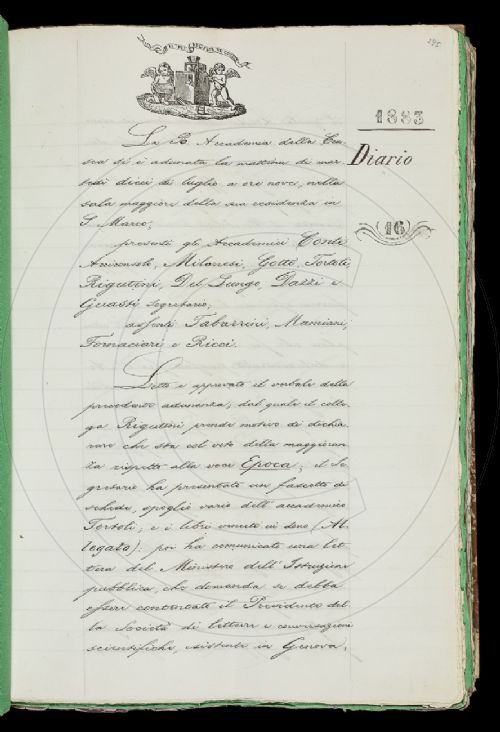 195
IL PIÙ BEL FIOR NE COGLIE
1883
Diario
(16)
La R. Accademia della Cru-
sca si è adunata la mattina di mar-
tedì dieci di luglio a ore nove, nella
sala maggiore della sua residenza in
S. Marco;
presenti gli Accademici Conti
Arciconsolo, Milanesi, Gotti, Tortoli,
Rigutini, Del Lungo, Dazzi e
Guasti Segretario;
assenti Tabarrini, Mamiani,
Fornaciari e Ricci.
Letto e approvato il verbale della
precedente adunanza, dal quale il colle-
ga Rigutini prende motivo di dichia-
rare che sta col voto della maggioran-
za rispetto alla voce Epoca; il Se-
gretario ha presentato un fascetto di
schede, spoglio vario dell'accademico
Tortoli, e i libri venuti in dono (Al-
legato): poi ha comunicato una let-
tera del Ministro dell'Istruzione
pubblica, che domanda se debba
essere contentato il Presidente del-
la Società di letture e conversazioni
scientifiche, esistente in Genova,